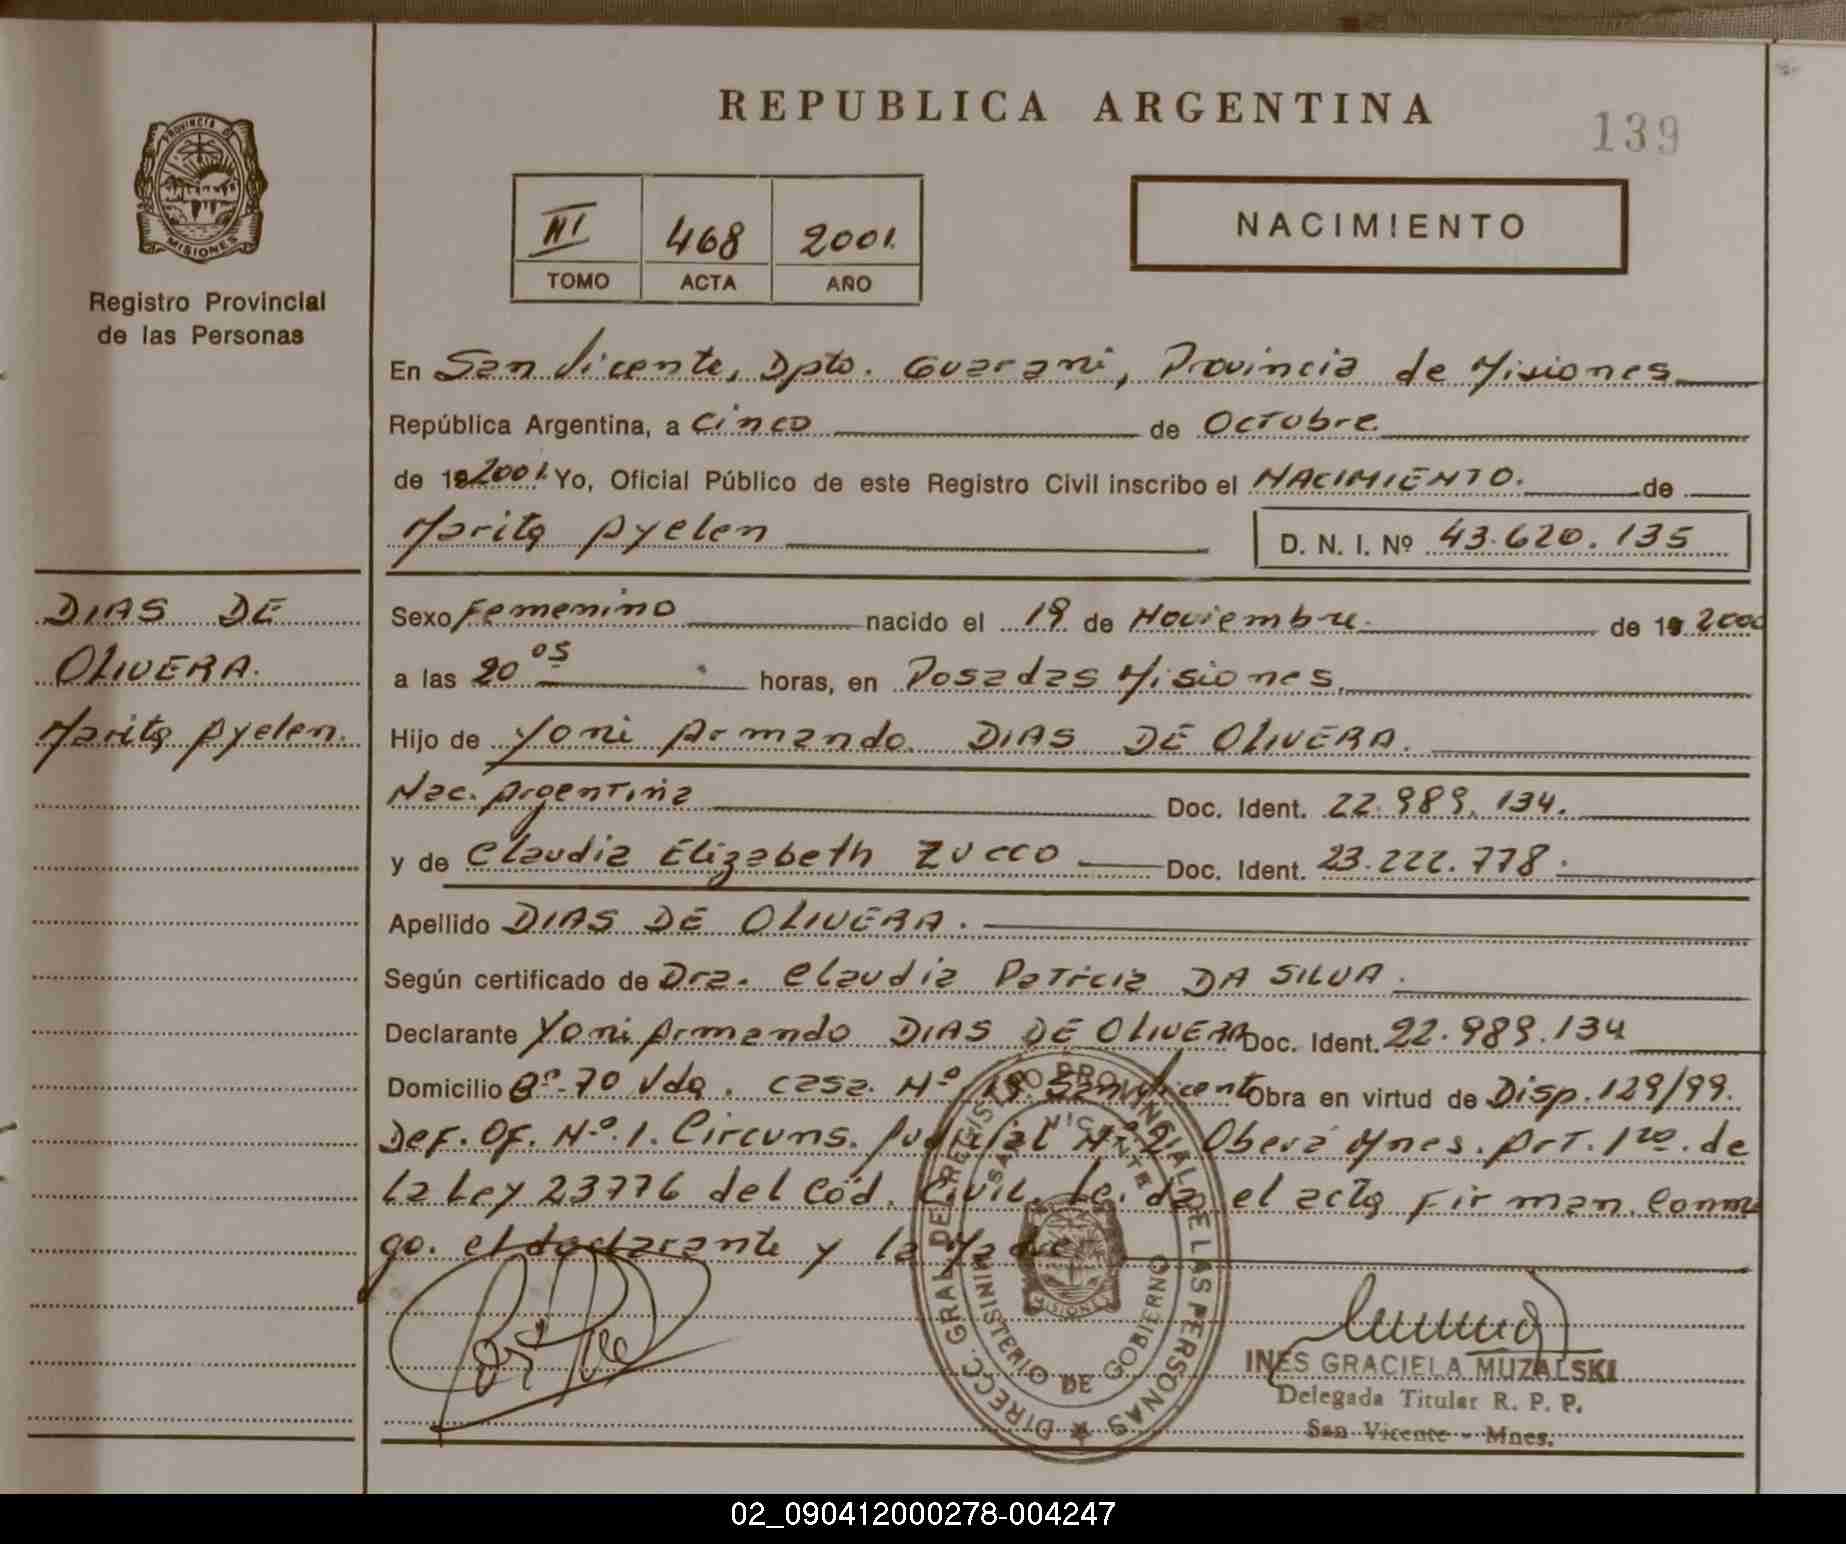 REPUBLICA ARGENTINA
139
PROVINCIA DE
MISIONES
Registro Provincial
de las Personas
III 468 2001.
TOMO ACTA AÑO
NACIMIENTO
En San Vicente, Dpto. Guarani, Provincia de Misiones
República Argentina, a Cinco de Octubre
de 192001. Yo, Oficial Público de este Registro Civil inscribo el NACIMIENTO. de
Marita Ayelen D. N. I. Nº 43.620.135
DIAS DE
OLIVERA.
Marita Ayelen.
Sexo Femenino nacido el 19 de Noviembre. de 19 2000
a las 20 05 horas, en Posadas Misiones.
Hijo de Yoni Armando DIAS DE OLIVERA.
Nac. Argentina Doc. Ident. 22.989.134.
y de Claudia Elizabeth ZUCCO Doc. Ident. 23.222.778.
Apellido DIAS DE OLIVERA.
Según certificado de Dra. Claudia Patricia DA SILVA.
Declarante Yoni Armando DIAS DE OLIVERA Doc. Ident. 22.989.134
Domicilio Bº 70 Vda. casa Nº 19. San Vicente Obra en virtud de Disp. 129/99.
Def. Of. Nº 1. Circuns. Judicial Nº 2. Oberá Mnes. Art. 1ro. de
La Ley 23776 del Cód. Civil. Le. da el acta Firman. Conmi
go. el declarante y la Madre
DIRECC. GRAL DEL REGISTRO PROVINCIAL DE LAS PERSONAS
SAN VICENTE
MINISTERIO DE GOBIERNO
MISIONES
INES GRACIELA MUZALSKI
Delegada Titular R. P. P.
San Vicente - Mnes.
02_090412000278-004247